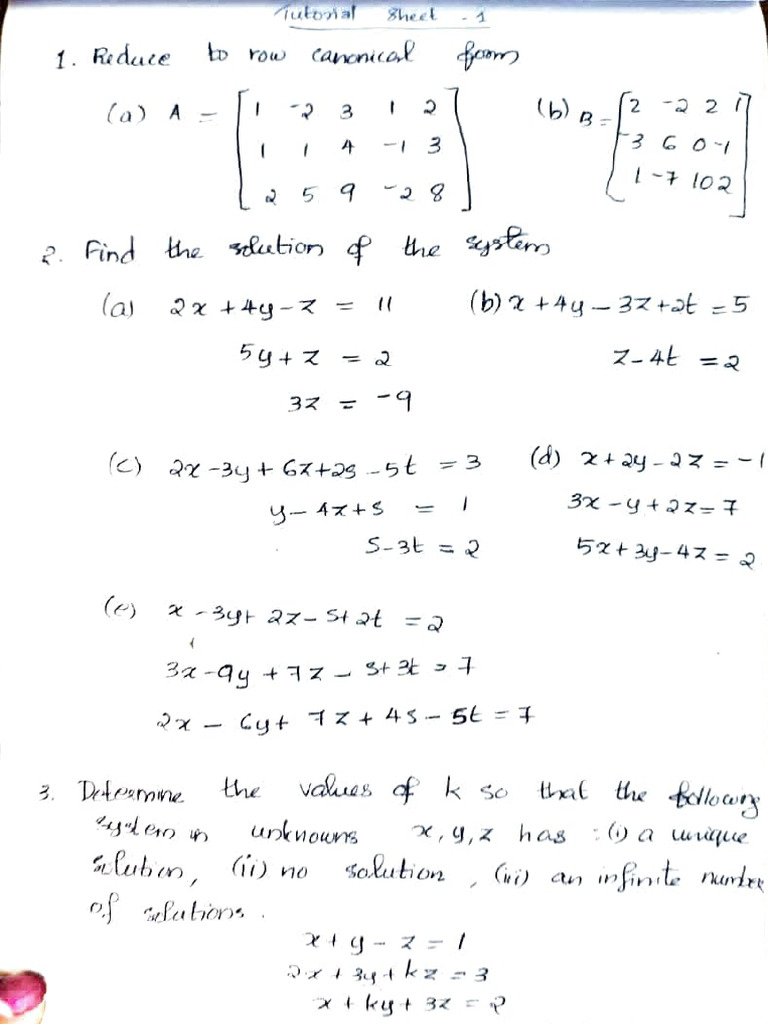 Tutorial Sheet - 1
1. Reduce to row canonical form
(a) A = [1 -2 3 1 2 (b) B = [2 -2 2 1
1 1 4 -1 3 -3 6 0 -1
2 5 9 -2 8] 1 -7 10 2]
2. Find the solution of the system
(a) 2x + 4y - z = 11 (b) x + 4y - 3z + 2t = 5
5y + z = 2 z - 4t = 2
3z = -9
(c) 2x - 3y + 6z + 2s - 5t = 3 (d) x + 2y - 2z = -1
y - 4z + s = 1 3x - y + 2z = 7
s - 3t = 2 5x + 3y - 4z = 2
(e) x - 3y + 2z - s + 2t = 2
3x - 9y + 7z - s + 3t = 7
2x - 6y + 7z + 4s - 5t = 7
3. Determine the values of k so that the following
system in unknowns x, y, z has : (i) a unique
solution, (ii) no solution, (iii) an infinite number
of solutions.
x + y - z = 1
2x + 3y + kz = 3
x + ky + 3z = 2